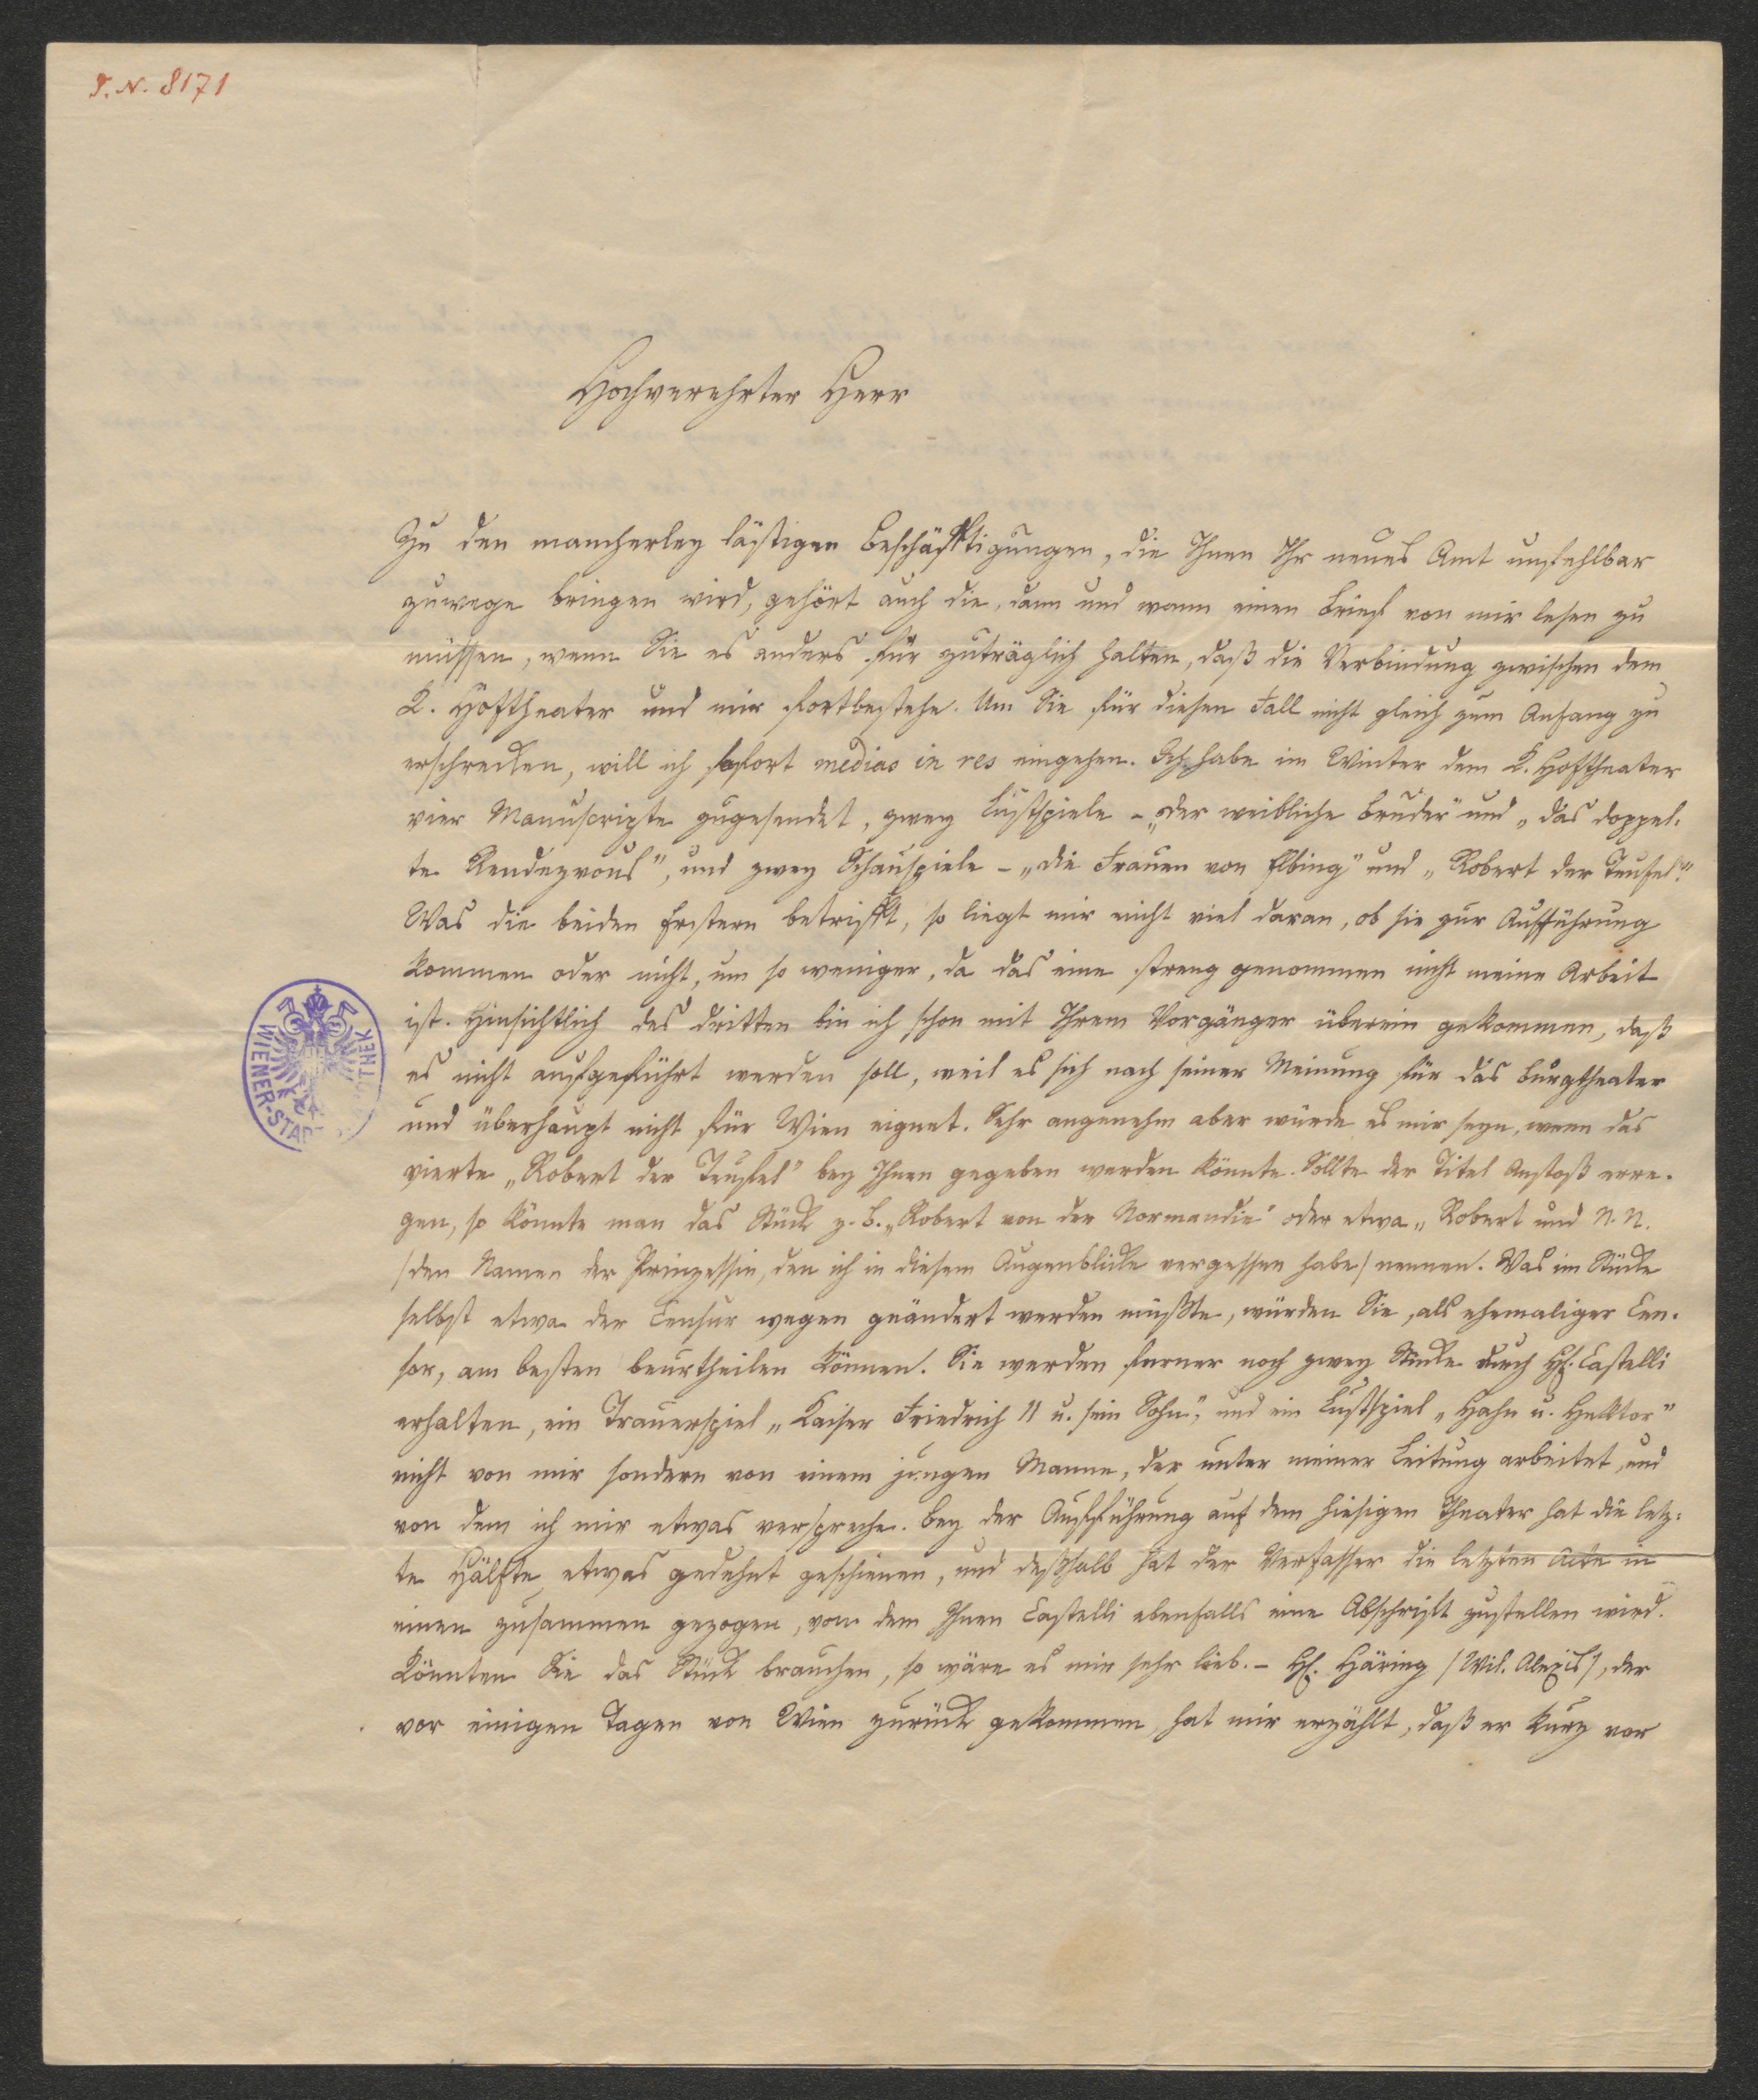 I. N. 8171
Hochverehrter Herr
Zu den mancherley lästigen Beschäftigungen, die Ihnen Ihr neues Amt unfehlbar
zuwege bringen wird, gehört auch die, dann und wann einen Brief von mir lesen zu
müssen, wenn Sie es anders für zuträglich halten, daß die Verbindung zwischen dem
K. Hoftheater und mir fortbestehe. Um Sie für diesen Fall nicht gleich zum Anfang zu
erschrecken, will ich sofort medias in res eingehen. Ich habe im Winter dem K. Hoftheater
vier Manuscripte zugesendet, zwey Lustspiele – „der weibliche Bruder" und „das doppel-
te Rendezvous", und zwey Schauspiele – „die Frauen von Elbing" und „Robert der Teufel".
Was die beiden Erstern betrifft, so liegt mir nicht viel daran, ob sie zur Aufführung
kommen oder nicht, um so weniger, da das eine streng genommen nicht meine Arbeit
ist. Hinsichtlich des dritten bin ich schon mit Ihrem Vorgänger überein gekommen, daß
es nicht aufgeführt werden soll, weil es sich nach seiner Meinung für das Burgtheater
und überhaupt nicht für Wien eignet. Sehr angenehm aber würde es mir seyn, wenn das
vierte „Robert der Teufel" bey Ihnen gegeben werden könnte. Sollte der Titel Anstoß erre-
gen, so könnte man das Stück z. B. „Robert von der Normandie" oder etwa „Robert und N. N.
/den Namen der Prinzessin, den ich in diesem Augenblicke vergessen habe/ nennen. Was im Stücke
selbst etwa der Censur wegen geändert werden müßte, würden Sie, als ehemaliger Cen-
sor, am besten beurtheilen können. Sie werden ferner noch zwey Stücke durch H. Castelli
erhalten, ein Trauerspiel „Kaiser Friedrich II u. sein Sohn", und ein Lustspiel „Hahn u. Hektor"
nicht von mir sondern von einem jungen Manne, der unter meiner Leitung arbeitet, und
von dem ich mir etwas verspreche. Bey der Aufführung auf dem hiesigen Theater hat die letz-
te Hälfte etwas gedehnt geschienen, und deßhalb hat der Verfasser die letzten Acte in
einen zusammen gezogen, von dem Ihnen Castelli ebenfalls eine Abschrift zustellen wird.
Könnten Sie das Stück brauchen, so wäre es mir sehr lieb. – H. Häring /Wil. Alexis/, der
vor einigen Tagen von Wien zurück gekommen, hat mir erzählt, daß er kurz vor
WIENER-STA
THEK